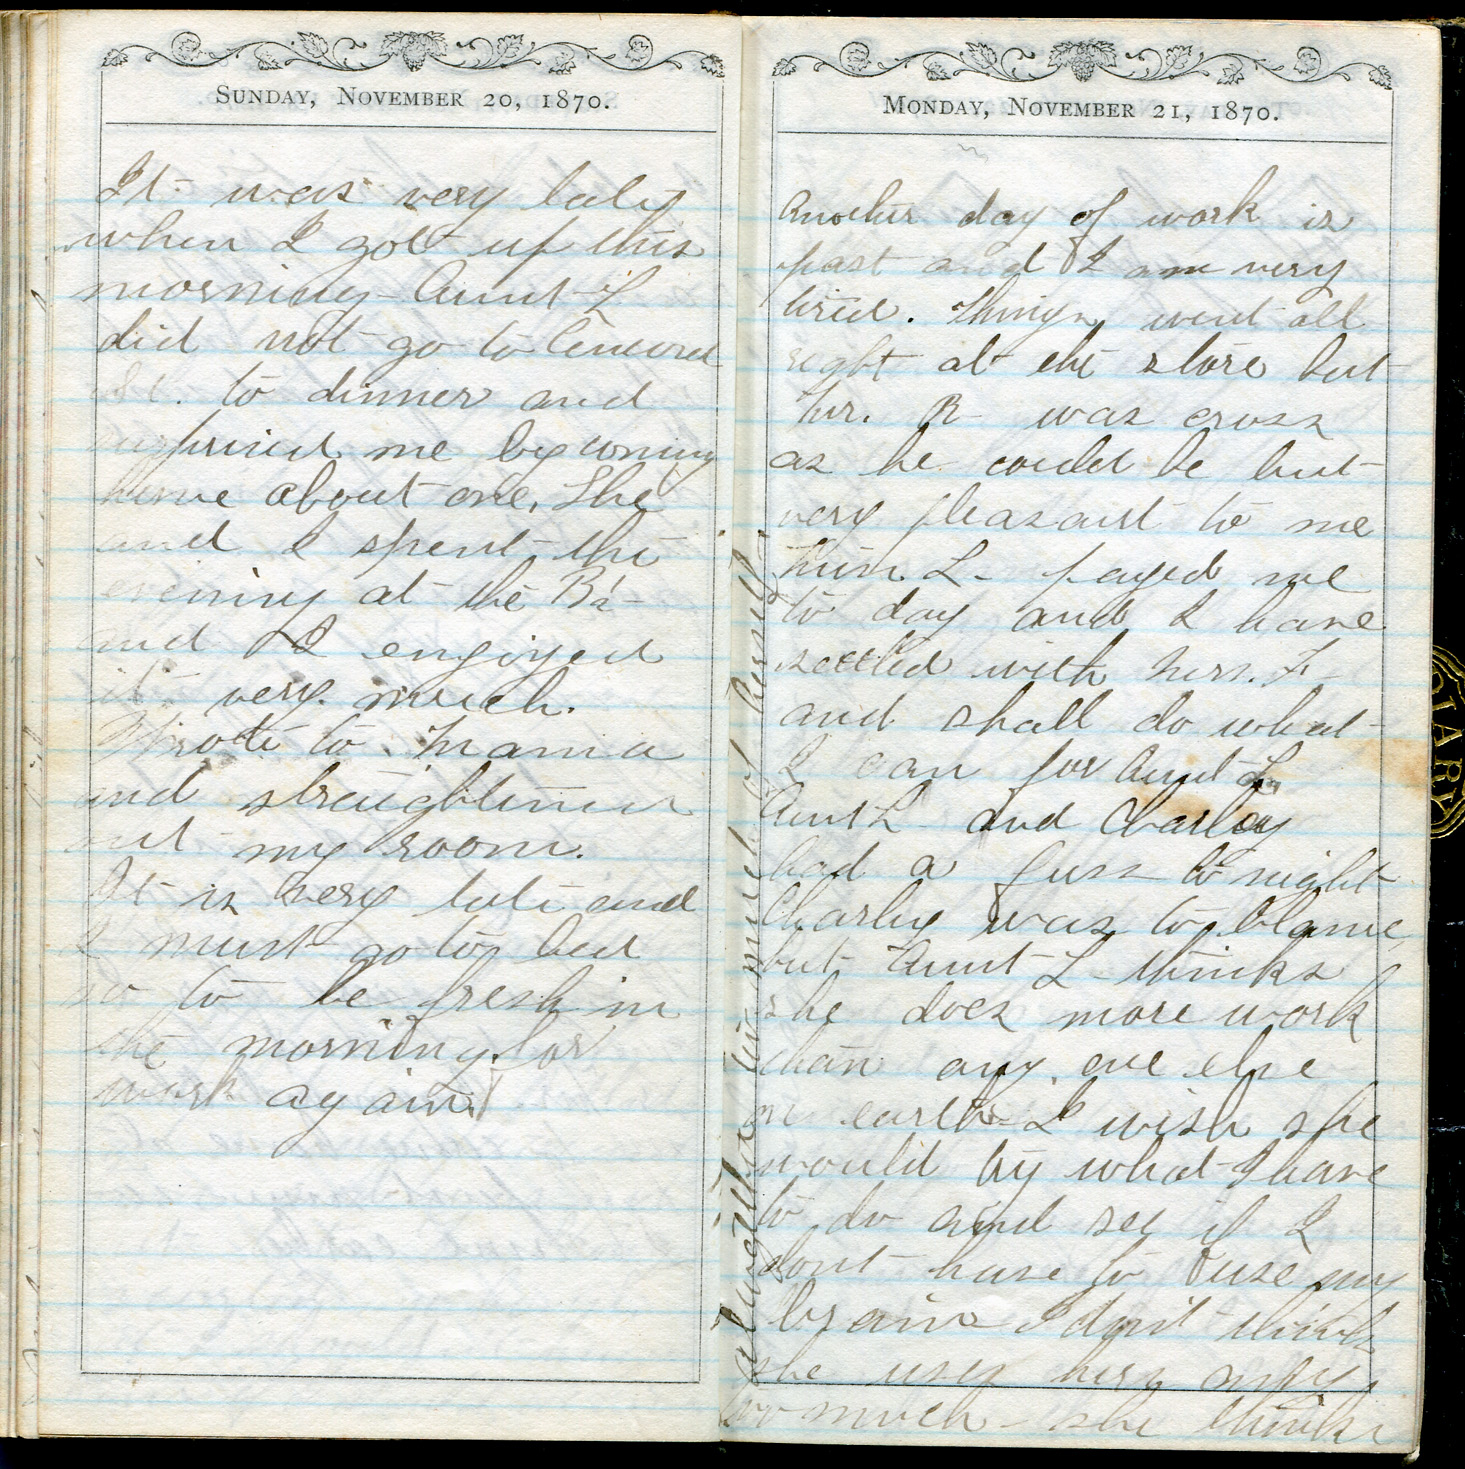 SUNDAY, NOVEMBER 20, 1870.
It was very late
when I got up this
morning - Aunt L
did not go to Concord
St. to dinner and
surprised me by coming
home about one. She
and I spent the
evening at the B's -
and I engoyed
it very much.
Wrote to Mama
and straightened
out my room.
It is very late and
I must go to bed
so to be fresh in
the morning for
work again.
MONDAY, NOVEMBER 21, 1870.
Another day of work is
past and I am very
tired. Things went all
right at the store but
Mr. R - was cross
as he could be but
very pleasant to me
L - payed me
to day and I have
settled with Mrs. F -
and shall do what
I can for Aunt L.
Aunt L - and Charley
had a fuss to night
Charley was to blame,
but Aunt L - thinks
she does more work
than any one else
on earth - I wish she
would try what I have
to do and see if I
dont have to use my
brains I don't think
she uses hers any
too much - she thinks
altogether too much of herself.
DIARY